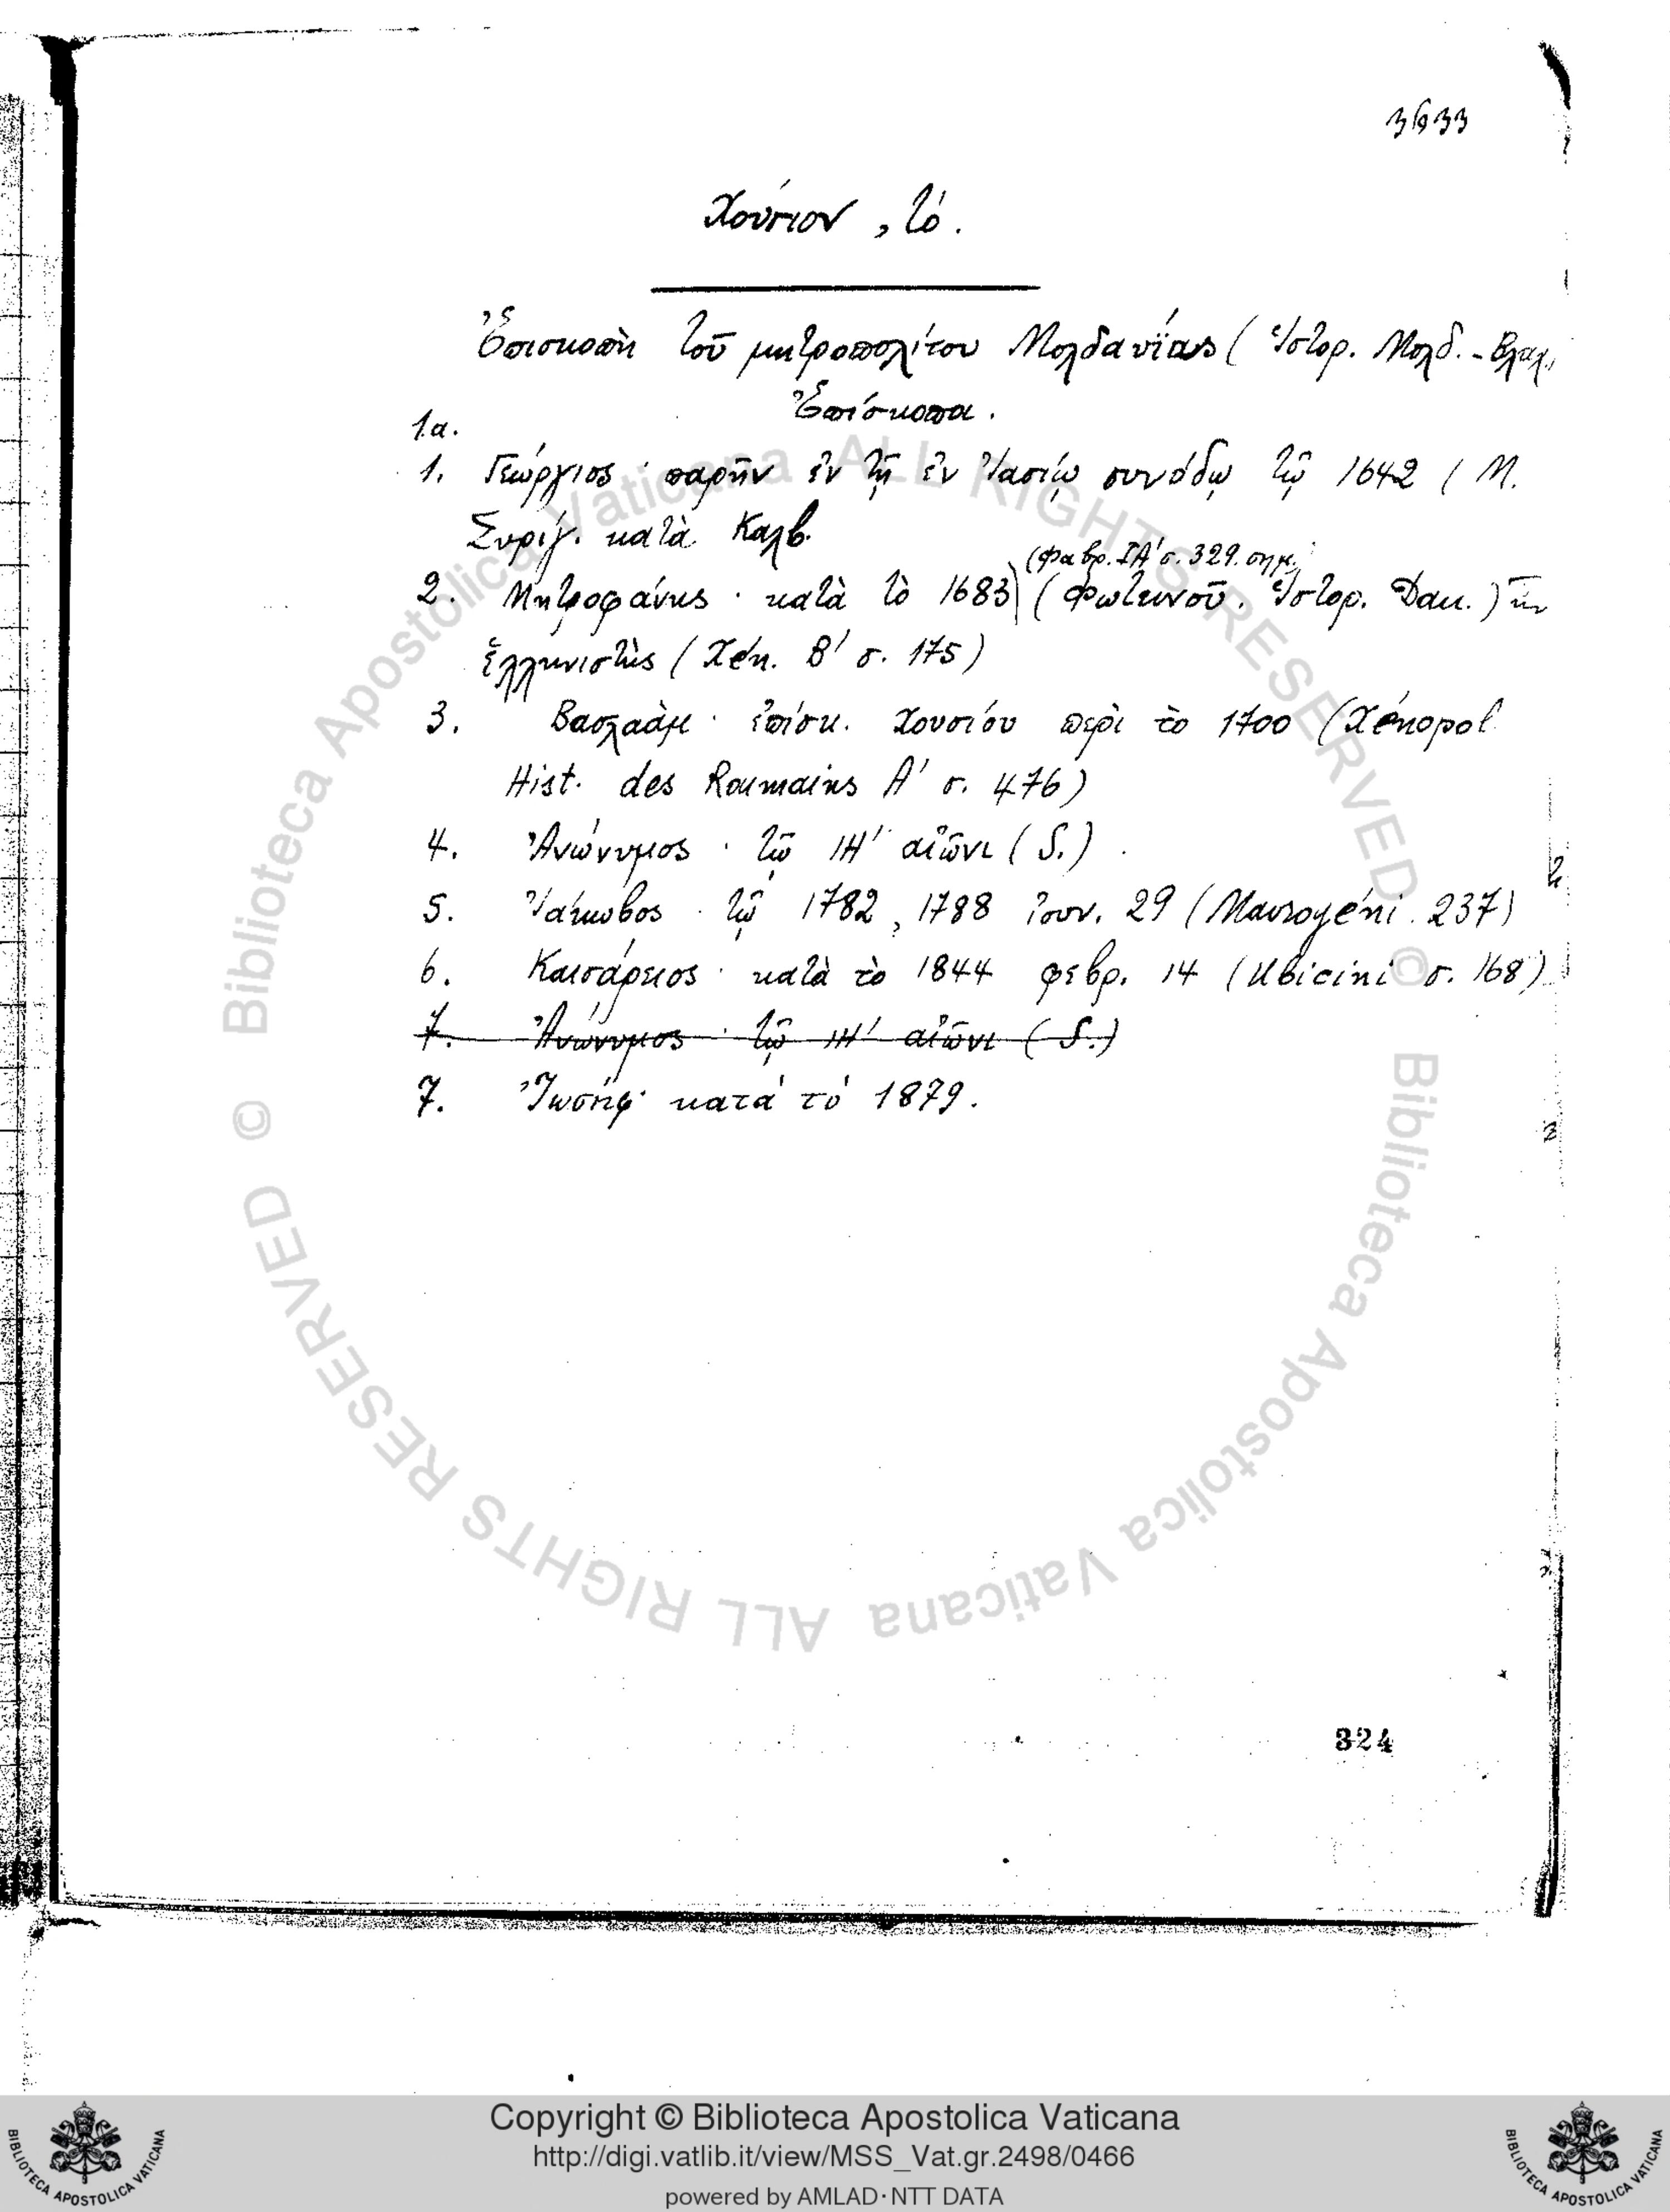 3633
Χούσιον, τό.
Ἐπισκοπὴ τοῦ μητροπολίτου Μολδαυΐας (Ἱστορ. Μολδ. - Βλαχ.
Ἐπίσκοποι.
1.α.
1. Γεώργιος · παρῆν ἐν τῇ ἐν Ἰασίῳ συνόδῳ τῷ 1642 (Μ.
Συρίγ. κατὰ Καλβ.
(Φαβρ. ΙΑ' σ. 329. σημ.)
2. Μητροφάνης · κατὰ τὸ 1683 (Φωτεινοῦ. Ἱστορ. Δακ.) ἦν
ἑλληνιστὴς (Xén. Β' σ. 175)
3. Βαρλαὰμ · ἐπίσκ. Χουσίου περὶ τὸ 1700 (Xénopol
Hist. des Roumains Α' σ. 476)
4. Ἀνώνυμος · τῷ ΙΗ' αἰῶνι (S.)
5. Ἰάκωβος · τῷ 1782, 1788 ἰουν. 29 (Mavrogéni. 237)
6. Καισάρειος · κατὰ τὸ 1844 φεβρ. 14 (Ubicini σ. 168)
7. Ἀνώνυμος · τῷ ΙΗ' αἰῶνι (S.)
7. Ἰωσὴφ · κατά τό 1879.
324
© Biblioteca Apostolica Vaticana ALL RIGHTS RESERVED © Biblioteca Apostolica Vaticana ALL RIGHTS RESERVED
Copyright © Biblioteca Apostolica Vaticana
http://digi.vatlib.it/view/MSS_Vat.gr.2498/0466
powered by AMLAD·NTT DATA
BIBLIOTECA APOSTOLICA VATICANA
BIBLIOTECA APOSTOLICA VATICANA